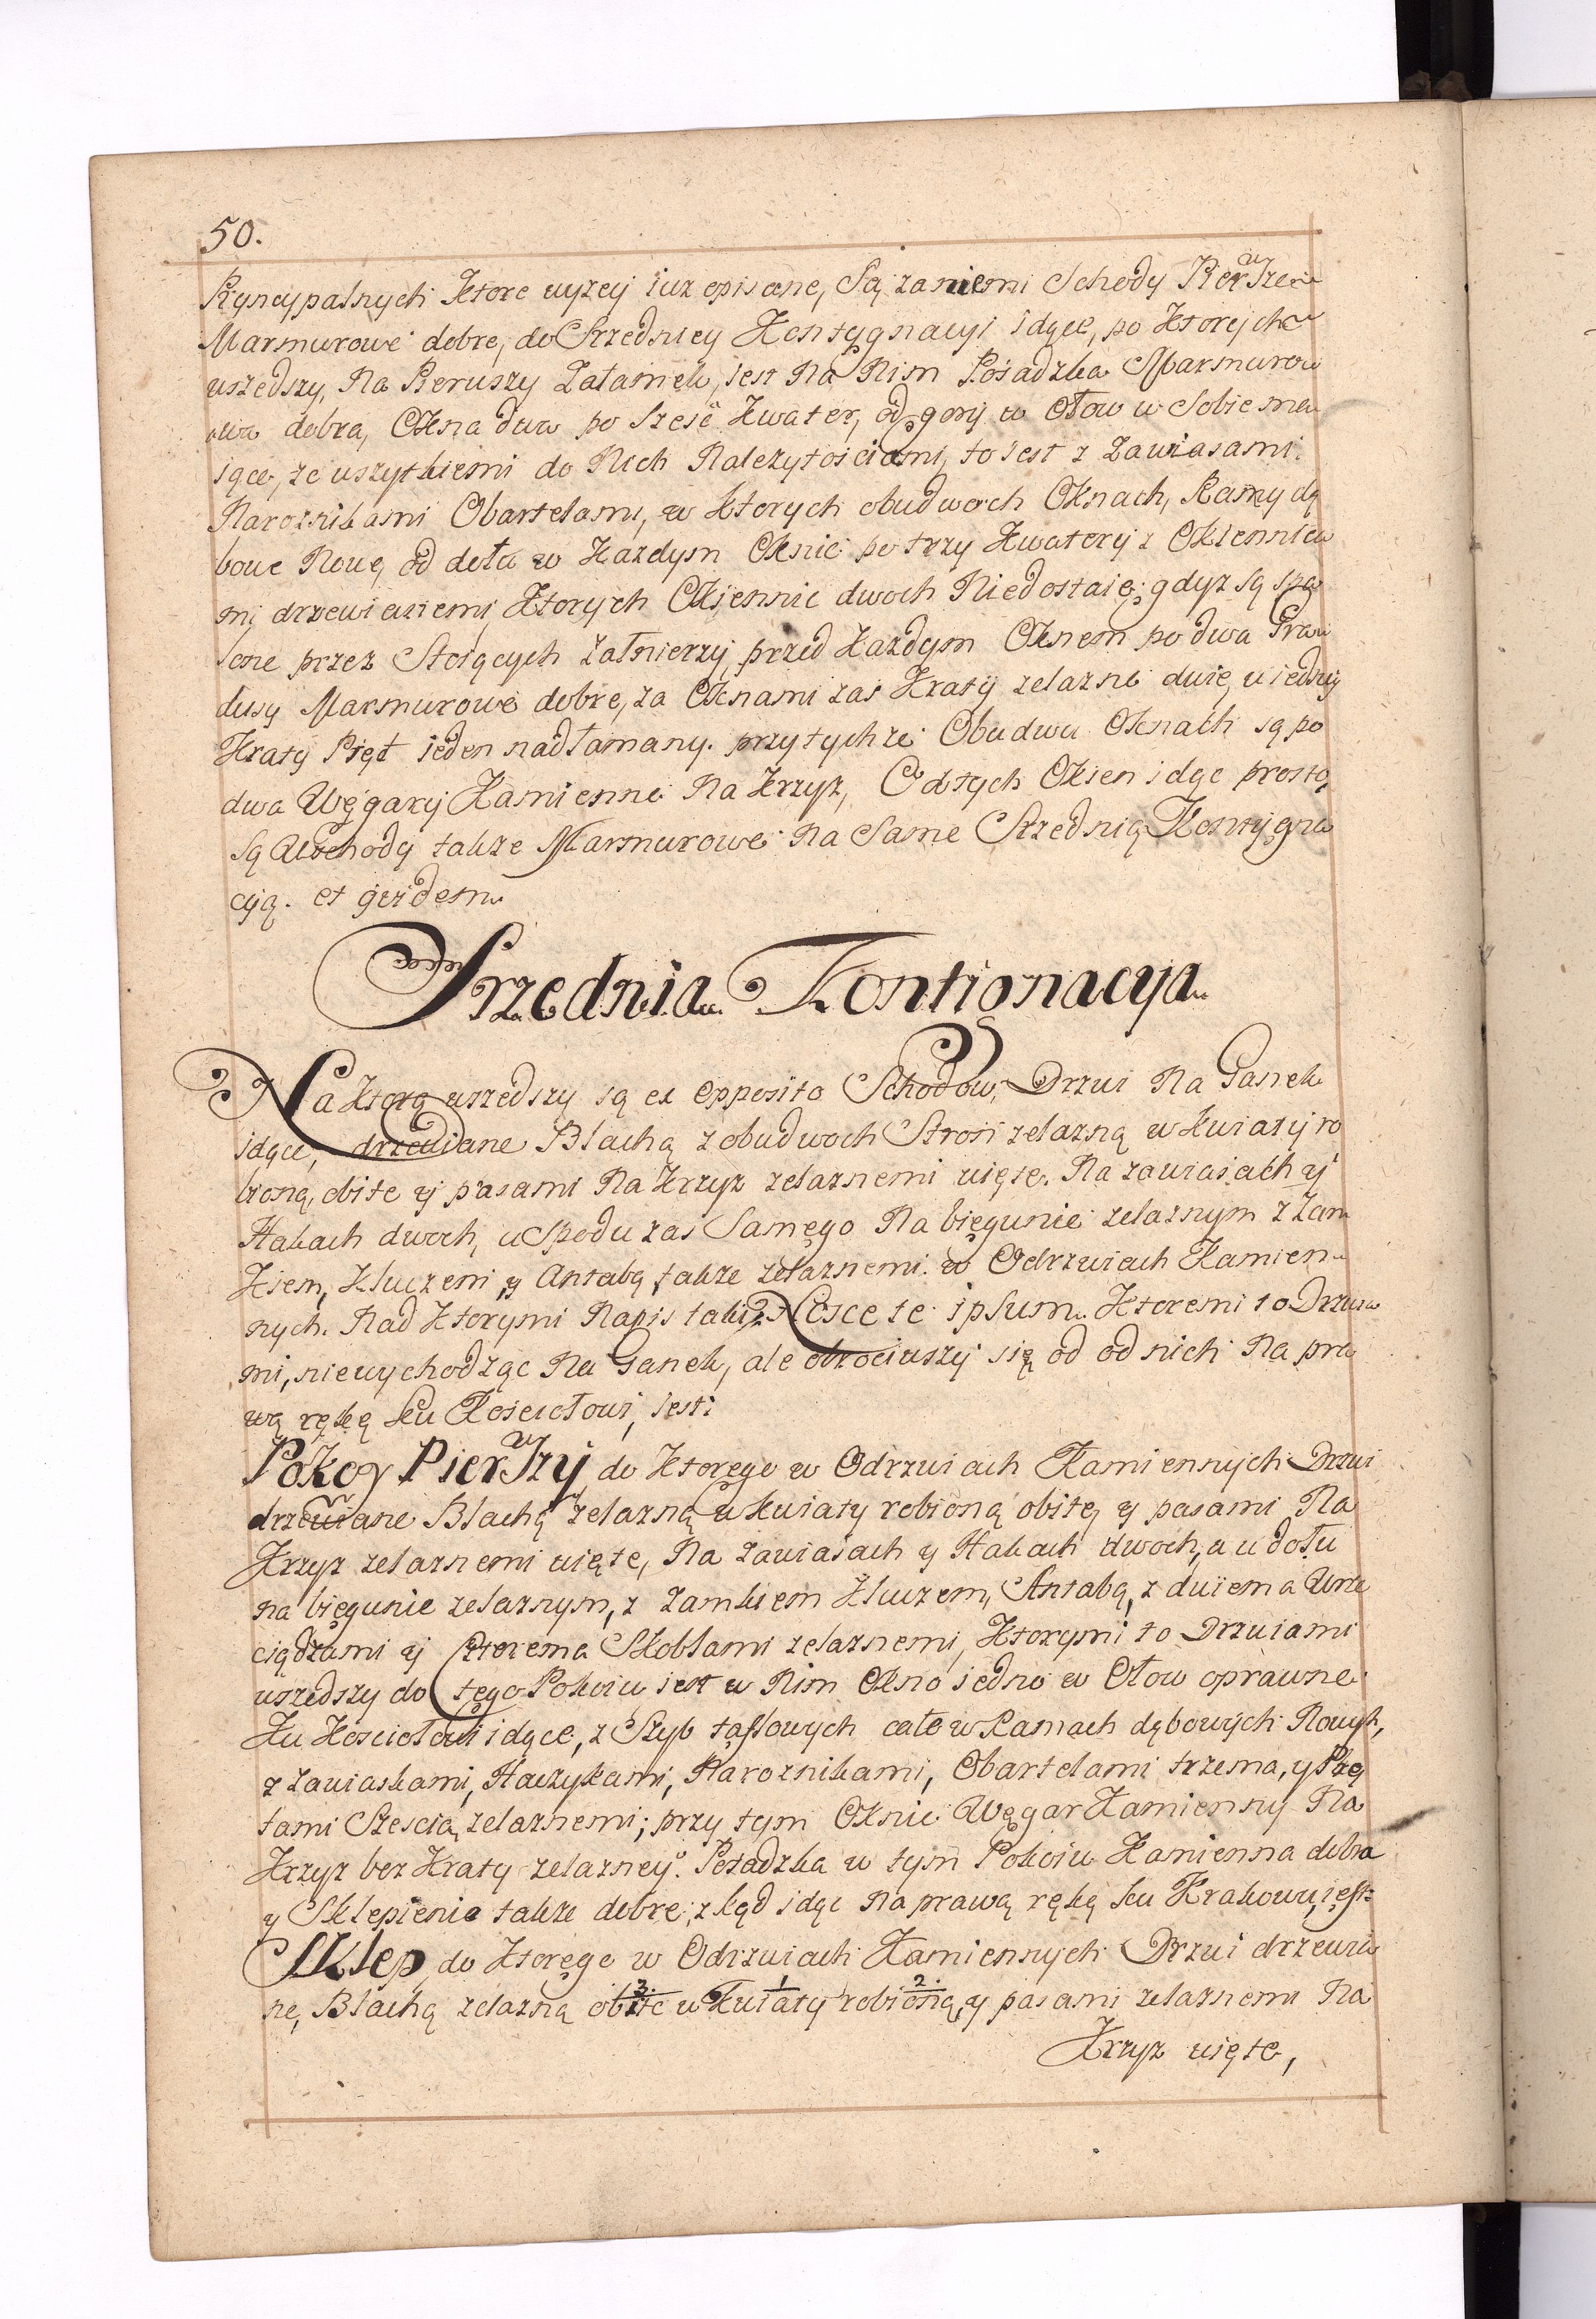 50.
Pryncypalnych ktore wyzey iuz opisane, Są zaniemi Schody Pierwsze
Marmurowe dobre, do Srzedniey Kontygnacyi idące, po ktorych
wszedszy, Na Pierwszy Załamek, iest Na Nim Posadzka Marmuro
wa dobra, Okna dwa po Szesc Kwater, od gory w Ołow w Sobie ma
iące, ze wszytkiemi do Nich Nalezytosciami, to iest z Zawiasami
Naroznikami Obartelami, w ktorych obudwoch Oknach, Ramy dę
bowe Nowe, od dołu w Kazdym Oknie po trzy Kwatery z Okiennica
mi drzewianemi, ktorych Okiennic dwoch Niedostaie, gdyz są spa
lone przez Stoiących Zołnierzy, przed Kazdym Oknem po dwa Gra
dusy Marmurowe dobre, za Oknami zas Kraty zelazne dwie, u iedny
Kraty Pręt ieden nadłamany. przytychze Obudwu Oknach są po
dwa Węgary Kamienne Na Krzyz, Odtych Okien idąc prosto,
są Wschody takze Marmurowe Na Same Srzednią Kontygna
cyą. et quidem
Srzednia Kontignacya
Na Ktorą wszedszy są ex opposito Schodow, Drzwi Na Ganek
idące, drzewiane Blachą z obudwoch Stron zelazną w kwiaty ro
bioną, obite y pasami Na Krzyz zelaznemi uięte. Na zawiasach y
Hakach dwoch, u Spodu zas Samego Na biegunie zelaznym z Zam
kiem, Kluczem y Antabą, takze zelaznemi w Odrzwiach Kamien
nych. Nad Ktorymi Napis taki: Nosce te ipsum. Ktoremi to Drzwia
mi, niewychodząc Na Ganek, ale obrociwszy się od od nich Na pra
wą rękę ku Kosciołowi, iest:
Pokoy Pierwszy do Ktorego w Odrzwiach Kamiennych Drzwi
drzewiane Blachą zelazną w kwiaty robioną obite, y pasami Na
Krzyz zelaznemi uięte, Na Zawiasach y Hakach dwoch, a u dołu
na biegunie zelaznym, z Zamkiem Kluczem, Antabą, z dwiema Wrze
ciądzami y Czterema Skoblami zelaznemi, Ktorymi to Drzwiami
wszedszy do tego Pokoiu iest w Nim Okno iedno w Ołow oprawne
Ku Kosciołowi idące, z Szyb taflowych całe w Ramach dębowych Nowych,
z Zawiaskami, Haczykami, Naroznikami, Obartelami trzema, y Prę
tami Szescią zelaznemi; przy tym Oknie Węgar Kamienny Na
Krzyz bez Kraty zelazney. Posadzka w tym Pokoiu Kamienna dobra
y Sklepienie takze dobre, zkąd idąc Na prawą rękę ku Krakowu, iest:
Sklep do Ktorego w Odrzwiach Kamiennych Drzwi drzewia
ne, Blachą zelazną obite 3. w kwiaty 1 robioną 2. y pasami zelaznemi Na
Krzyz uięte,